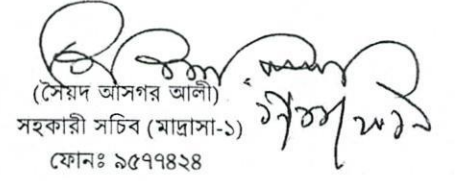 (সৈয়দ আসগর আলী)
সহকারী সচিব (মাদ্রাসা-১)
ফোনঃ ৯৫৭৭৪২৪